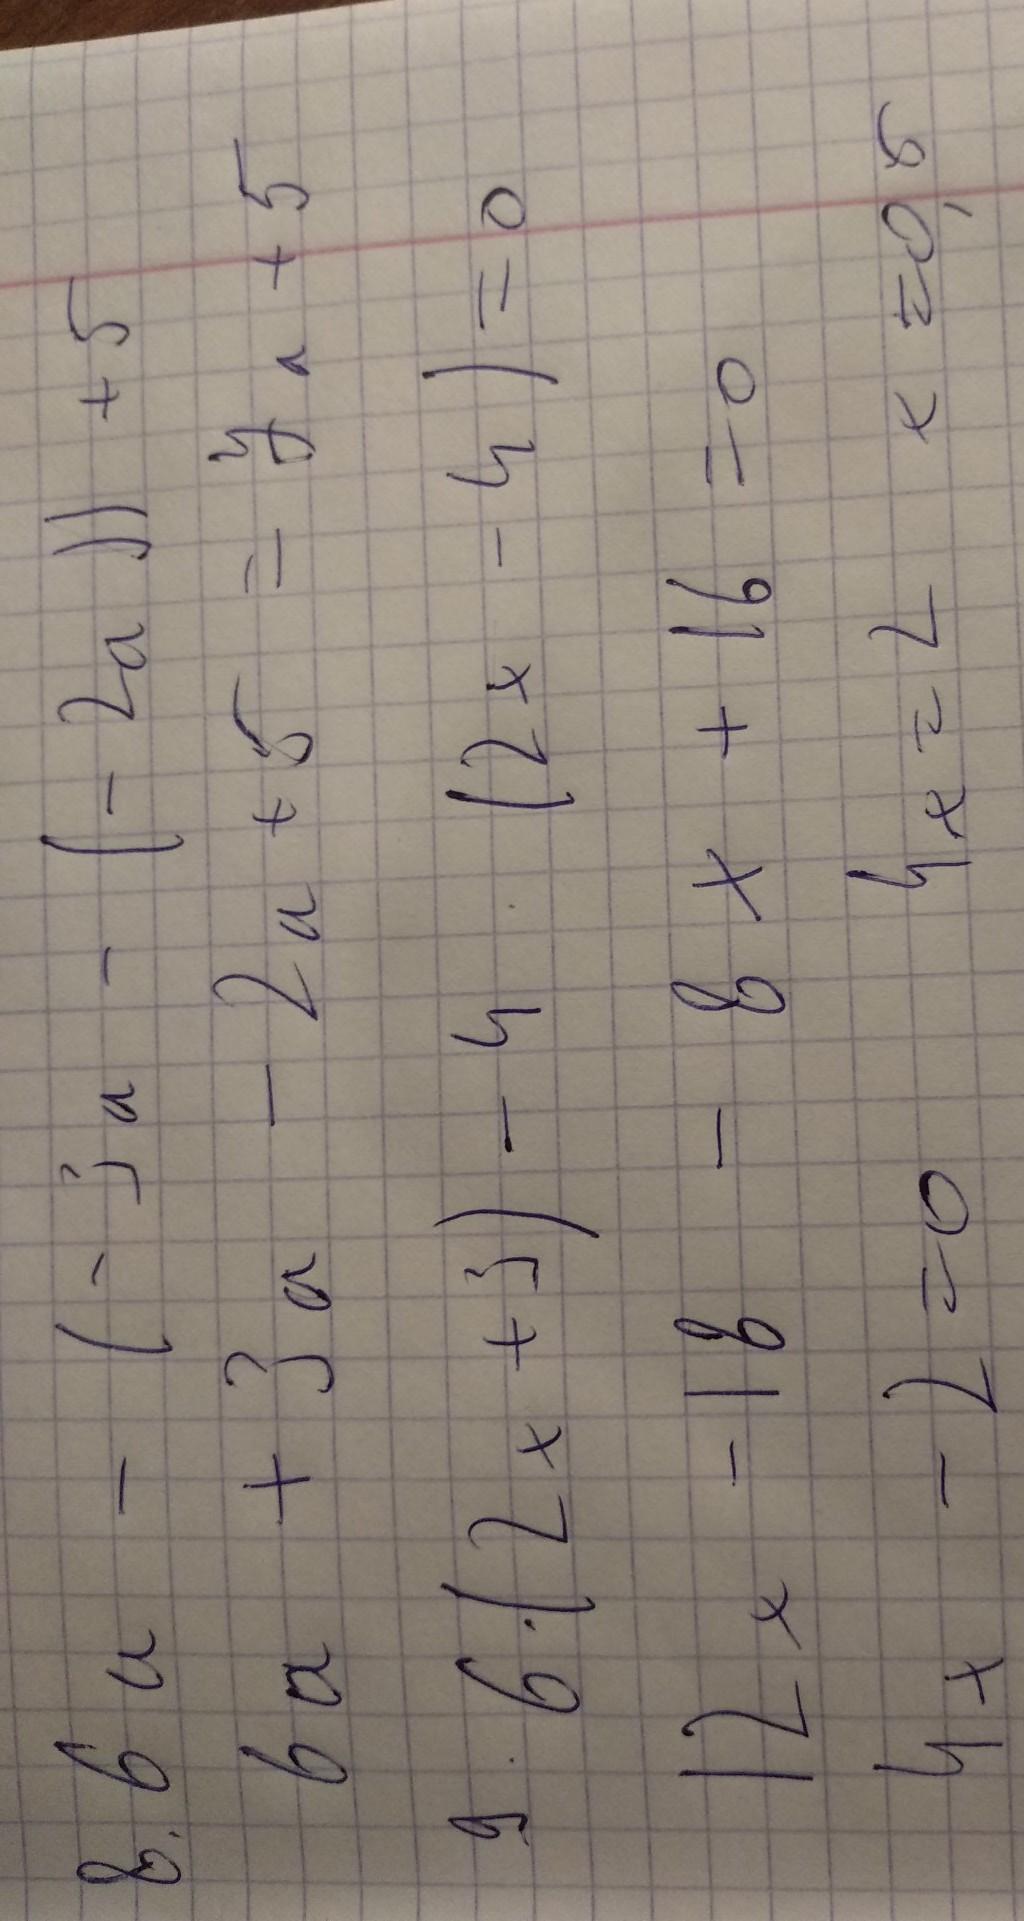 8. 6a - (-3a - (-2a)) + 5
6a + 3a - 2a + 5 = 7a + 5
9. 6·(2x + 3) - 4 · (2x - 4) = 0
12x - 18 - 8x + 16 = 0
4x - 2 = 0 4x = 2 x = 0,5